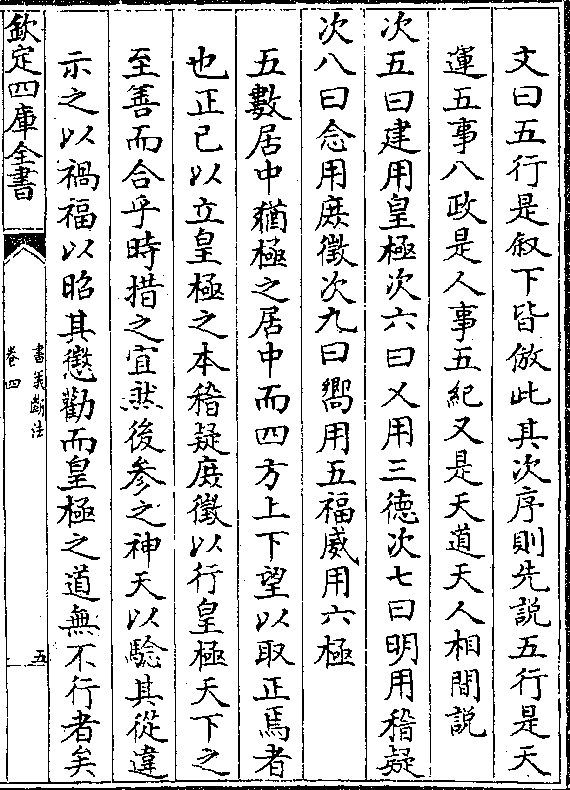 文曰五行是叙下皆倣此其次序則先説五行是天
運五事八政是人事五紀又是天道天人相間説
次五曰建用皇極次六曰乂用三徳次七曰明用稽疑
次八曰念用庶徵次九曰嚮用五福威用六極
五數居中猶極之居中而四方上下望以取正焉者
也正已以立皇極之本稽疑庶徵以行皇極天下之
至善而合乎時措之宜然後参之神天以驗其從違
示之以禍福以昭其懲勸而皇極之道無不行者矣
欽定四庫全書
書義斷法
卷四
五